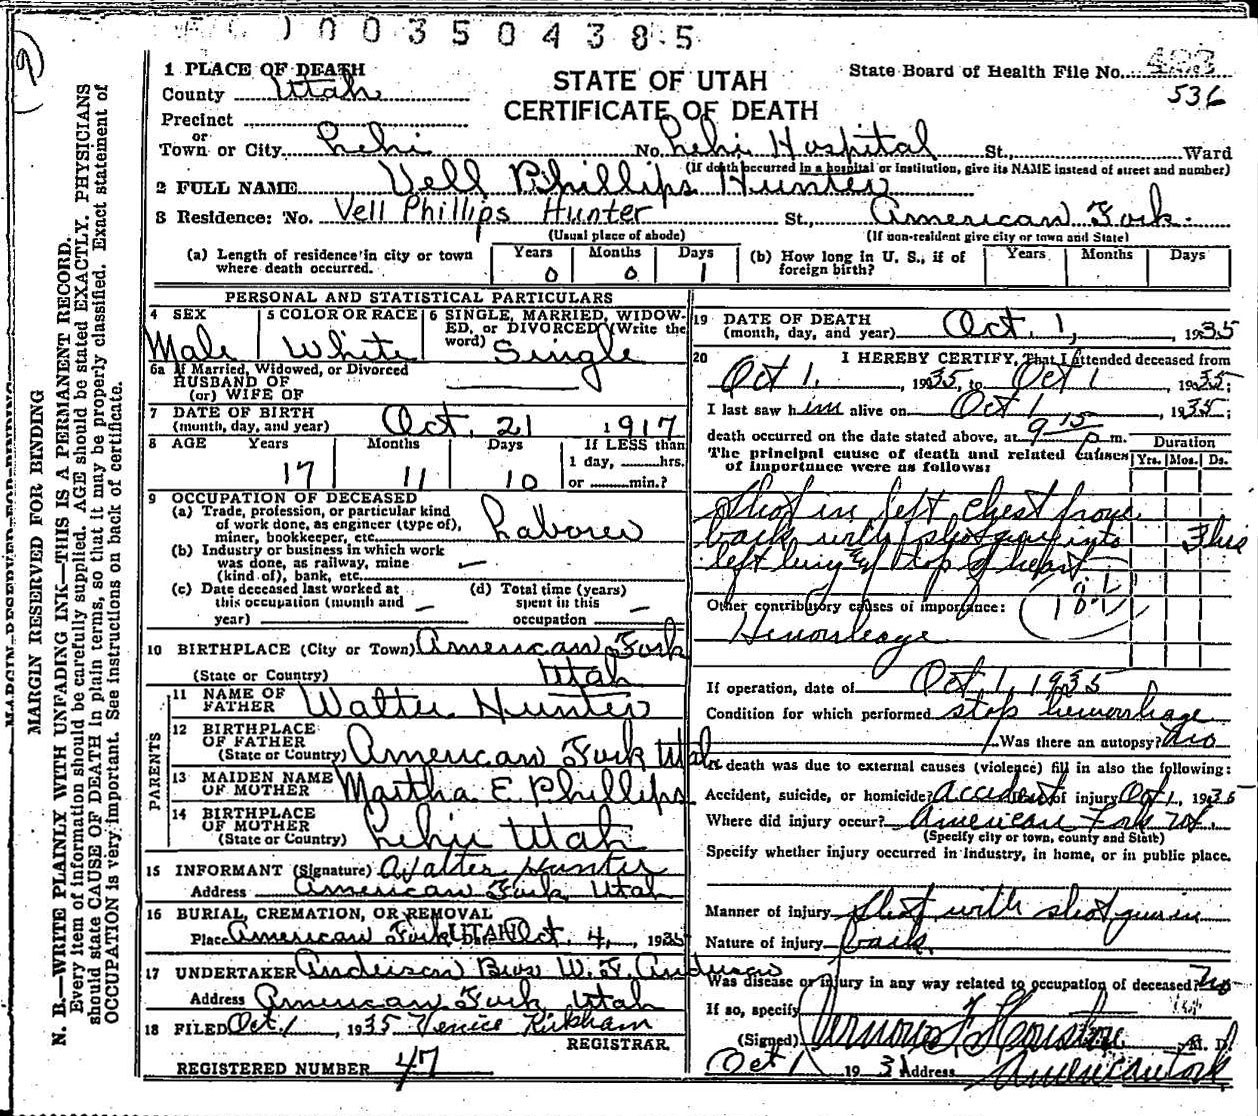 1003504385
1 PLACE OF DEATH
County Utah
Precinct
or
Town or City Lehi
STATE OF UTAH
CERTIFICATE OF DEATH
State Board of Health File No. 483
536
No. Lehi Hospital St., Ward
(If death occurred in a hospital or institution, give its NAME instead of street and number)
2 FULL NAME Vell Phillips Hunter
3 Residence: No. Vell Phillips Hunter St., American Fork.
(Usual place of abode) (If non-resident give city or town and State)
(a) Length of residence in city or town where death occurred. Years 0 Months 0 Days 1
(b) How long in U. S., if of foreign birth? Years Months Days
MARGIN RESERVED FOR BINDING
N. B.—WRITE PLAINLY WITH UNFADING INK—THIS IS A PERMANENT RECORD.
Every item of information should be carefully supplied. AGE should be stated EXACTLY. PHYSICIANS
should state CAUSE OF DEATH in plain terms, so that it may be properly classified. Exact statement of
OCCUPATION is very important. See instructions on back of certificate.
PERSONAL AND STATISTICAL PARTICULARS
4 SEX Male
5 COLOR OR RACE White
6 SINGLE, MARRIED, WIDOWED, or DIVORCED (Write the word) Single
6a If Married, Widowed, or Divorced
HUSBAND OF
(or) WIFE OF
7 DATE OF BIRTH
(month, day, and year) Oct. 21 1917
8 AGE Years 17 Months 11 Days 10 If LESS than
1 day, hrs.
or min.?
9 OCCUPATION OF DECEASED
(a) Trade, profession, or particular kind
of work done, as engineer (type of),
miner, bookkeeper, etc. Laborer
(b) Industry or business in which work
was done, as railway, mine
(kind of), bank, etc. —
(c) Date deceased last worked at
this occupation (month and
year) —
(d) Total time (years)
spent in this
occupation —
10 BIRTHPLACE (City or Town) American Fork
(State or Country) Utah
PARENTS
11 NAME OF FATHER Walter Hunter
12 BIRTHPLACE OF FATHER
(State or Country) American Fork Utah
13 MAIDEN NAME OF MOTHER Martha E. Phillips
14 BIRTHPLACE OF MOTHER
(State or Country) Lehi Utah
15 INFORMANT (Signature) Walter Hunter
Address American Fork Utah
16 BURIAL, CREMATION, OR REMOVAL
Place American Fork UTAH Date Oct. 4, 1935
17 UNDERTAKER Anderson Bros W. F. Anderson
Address American Fork Utah
18 FILED Oct 1, 1935 Venice Kirkham
REGISTRAR.
REGISTERED NUMBER 47
19 DATE OF DEATH
(month, day, and year) Oct. 1, 1935
20 I HEREBY CERTIFY, That I attended deceased from
Oct 1, 1935, to Oct 1, 1935;
I last saw him alive on Oct 1, 1935;
death occurred on the date stated above, at 9 15 p m.
The principal cause of death and related causes
of importance were as follows:
Duration
Yrs. Mos. Ds.
Shot in left chest from
back with shotgun into
left lung & top of heart
Other contributory causes of importance:
Hemorrhage
If operation, date of Oct 1, 1935
Condition for which performed stop hemorrhage
Was there an autopsy? No
If death was due to external causes (violence) fill in also the following:
Accident, suicide, or homicide? Accident Date of injury Oct 1, 1935
Where did injury occur? American Fork Ut.
(Specify city or town, county and State)
Specify whether injury occurred in industry, in home, or in public place.
Manner of injury Shot with shotgun in
Nature of injury back.
Was disease or injury in any way related to occupation of deceased? No
If so, specify
(Signed) M. D.
Oct 1 1931 Address American Fork